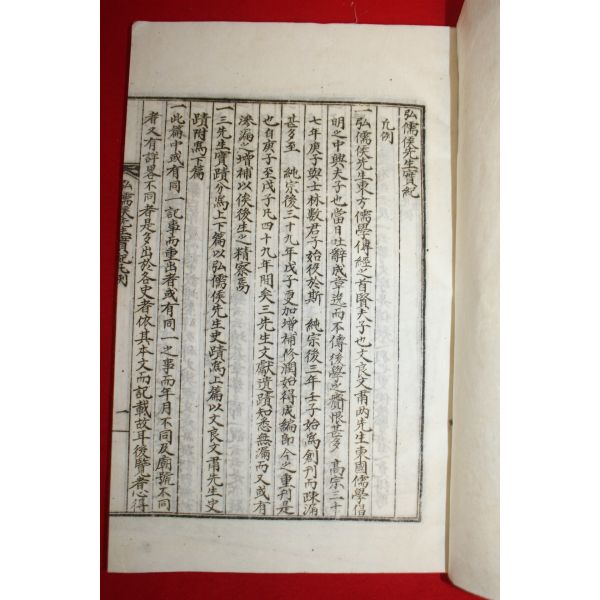 弘儒侯先生實紀
凡例
一弘儒侯先生東方儒學傳經之首賢夫子也文良文甫兩先生東國儒學倡
明之中興夫子也當日吐辭成章逸而不傳後學之齎恨甚多 高宗三十
七年庚子與士林數君子始役於斯 純宗後三年壬子始爲創刊而疎漏
甚多至 純宗後三十九年戊子更加增補修潤始得成編卽今之重刊是
也自庚子至戊子凡四十九年間矣三先生文獻遺蹟知悉無漏而又或有
滲漏之增補以俟後生之精察焉
一三先生實蹟分爲上下篇以弘儒侯先生史蹟爲上篇以文良文甫先生史
蹟附爲下篇
一此篇中或有同一記事而重出者或有同一之事而年月不同及廟號不同
者又有詳畧不同者是多出於各史者依其本文而記載故耳後覽者心得
弘儒侯先生實紀凡例
一